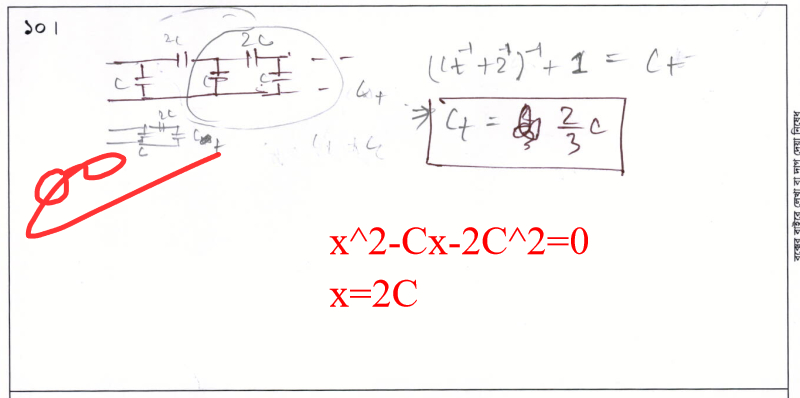 ১০।
2C 2C
C C C
C_t
2C
C C_t
((C_t^-1 + 2^-1)^-1 + 1 = C_t
⇒ C_t = 2/3 C
x^2-Cx-2C^2=0
x=2C
বক্সের বাইরে লেখা বা দাগ দেয়া নিষেধ